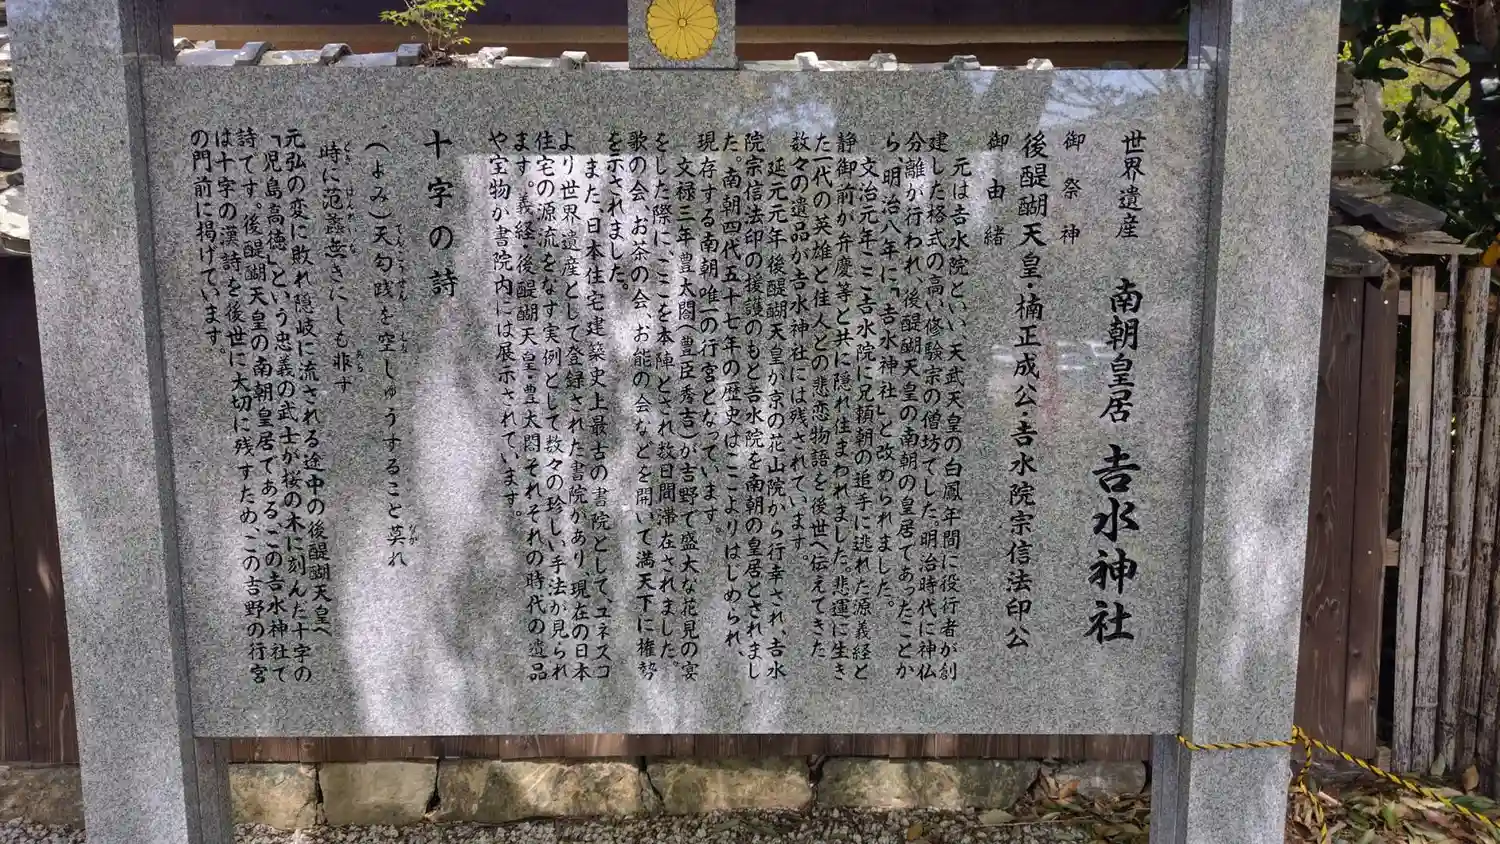 世界遺産 南朝皇居 吉水神社
御祭神
後醍醐天皇・楠正成公・吉水院宗信法印公
御由緒
元は吉水院といい、天武天皇の白鳳年間に役行者が創
建した格式の高い修験宗の僧坊でした。明治時代に神仏
分離が行われ、後醍醐天皇の南朝の皇居であったことか
ら、明治八年に「吉水神社」と改められました。
文治元年、ここ吉水院に兄頼朝の追手に逃れた源義経と
静御前が弁慶等と共に隠れ住まわれました。悲運に生き
た一代の英雄と佳人との悲恋物語を後世へ伝えてきた
数々の遺品が吉水神社には残されています。
延元元年後醍醐天皇が京の花山院から行幸され、吉水
院宗信法印の援護のもと吉水院を南朝の皇居とされまし
た。南朝四代五十七年の歴史はここよりはじめられ、
現存する南朝唯一の行宮となっています。
文禄三年、豊太閤(豊臣秀吉)が吉野で盛大な花見の宴
をした際に、ここを本陣とされ数日間滞在されました。
歌の会、お茶の会、お能の会などを開いて満天下に権勢
を示されました。
また、日本住宅建築史上最古の書院として、ユネスコ
より世界遺産として登録された書院があり、現在の日本
住宅の源流をなす実例として数々の珍しい手法が見られ
ます。義経・後醍醐天皇・豊太閤それぞれの時代の遺品
や宝物が書院内には展示されています。
十字の詩
(よみ)天勾践を空しゅうすること莫れ
時に范蠡無きにしも非ず
元弘の変に敗れ隠岐に流される途中の後醍醐天皇へ
「児島高徳」という忠義の武士が桜の木に刻んだ十字の
詩です。後醍醐天皇の南朝皇居である、この吉水神社で
は十字の漢詩を後世に大切に残すため、この吉野の行宮
の門前に掲げています。